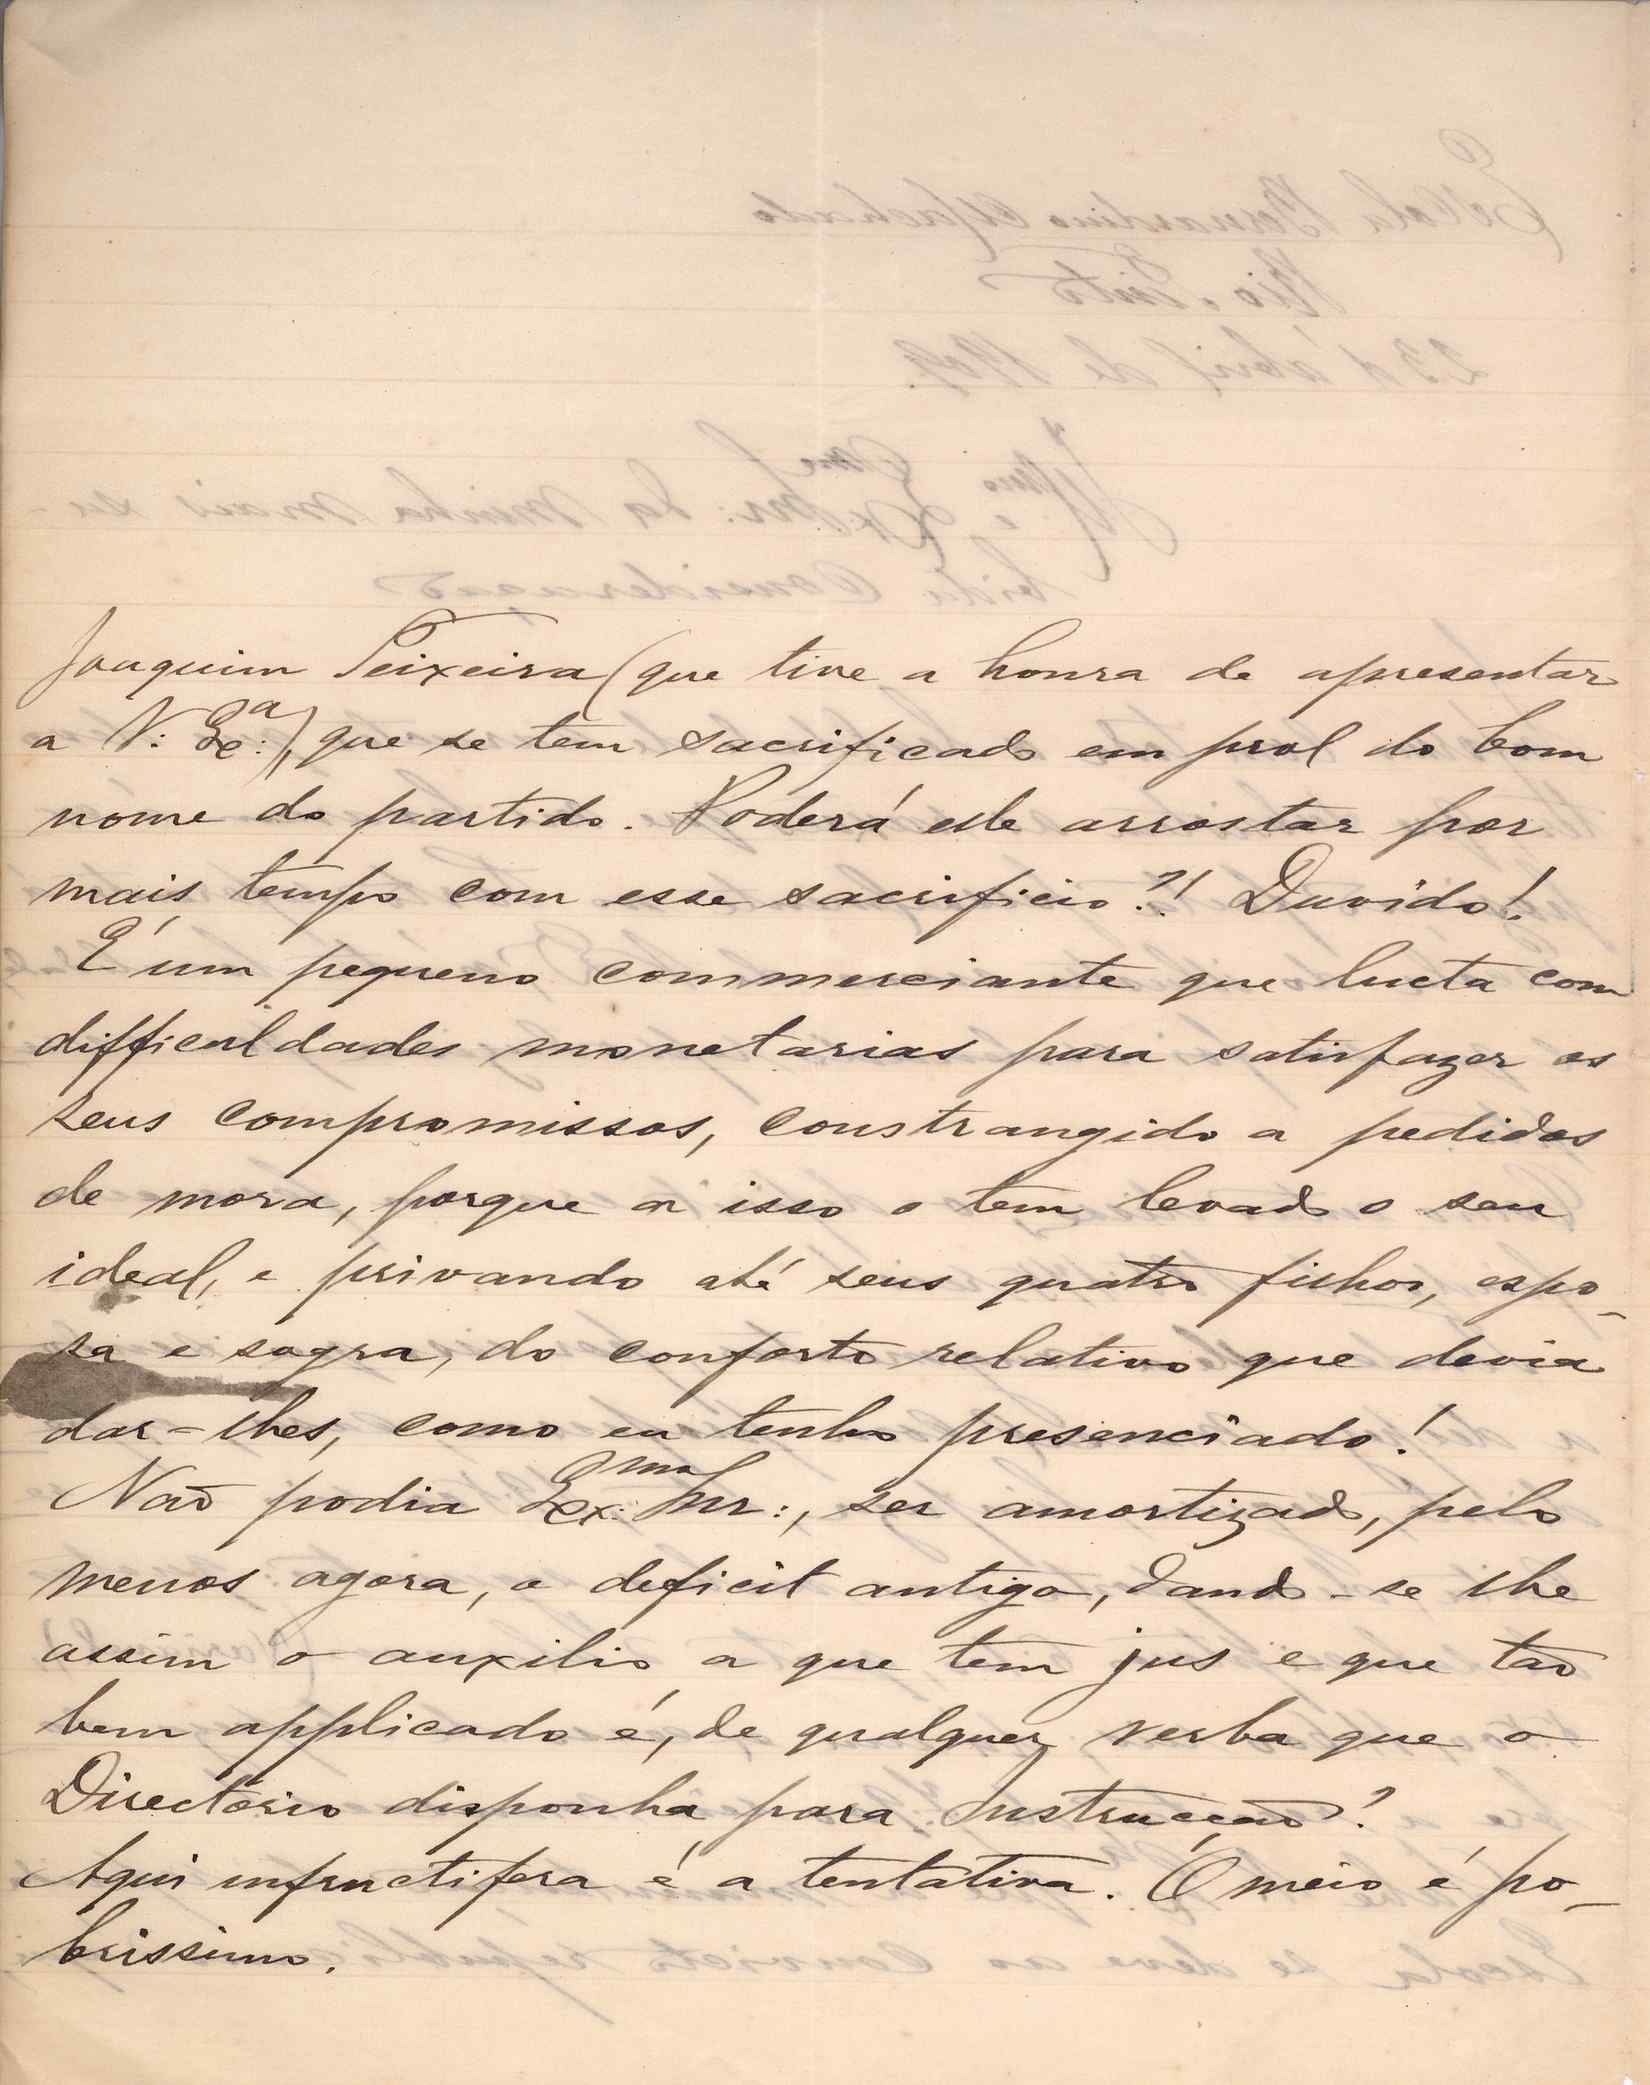 Joaquim Teixeira (que tive a honra de apresentar
a V: Ex:ª), que se tem sacrificado em prol do bom
nome do partido. Poderá elle arrostar por
mais tempo com esse sacrificio?! Duvido!
É um pequeno commerciante que lucta com
difficuldades monetarias para satisfazer os
seus compromissos, constrangido a pedidos
de mora, porque a isso o tem levado o seu
ideal, e privando até seus quatro filhos, espo-
sa e sogra, do conforto relativo que devia
dar-lhes, como eu tenho presenciado!
Não podia Ex:mo Snr:, ser amortizado, pelo
menos agora, o deficit antigo, dando-se lhe
assim o auxilio a que tem jus e que tão
bem applicado é, de qualquer verba que o
Directorio disponha para Instrucção?
Aqui infructifera é a tentativa. O meio é po-
brissimo.